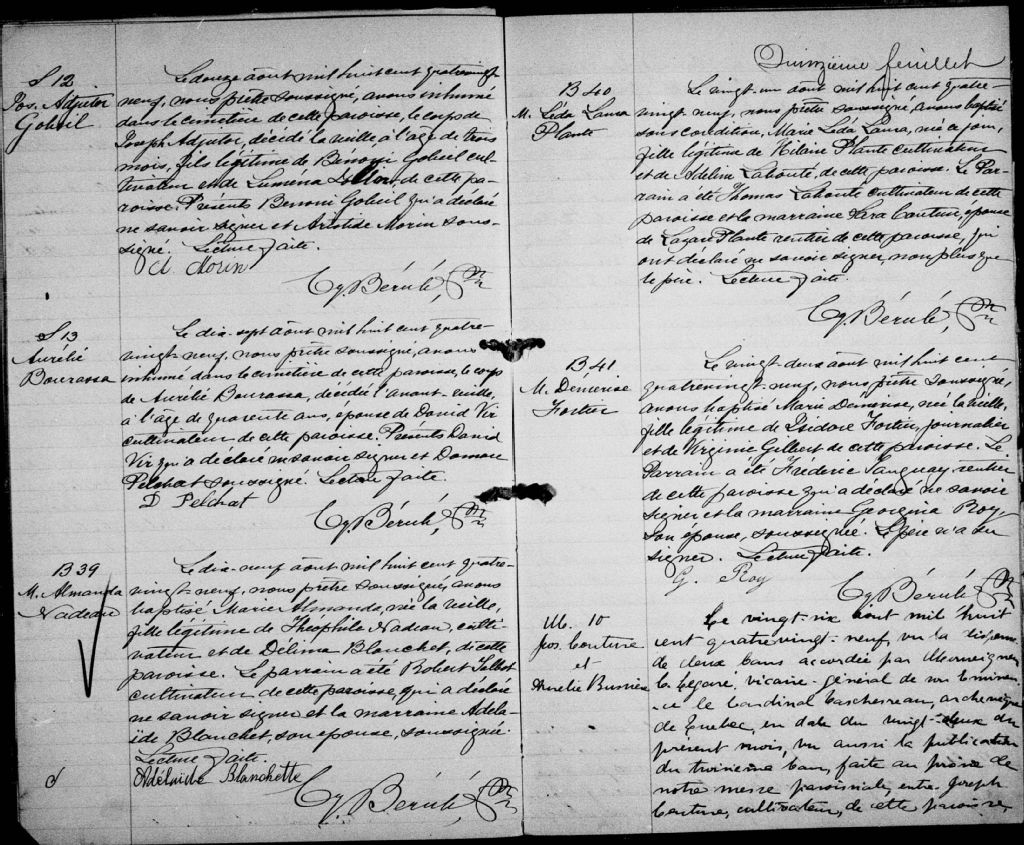 S 12
Jos. Adjutor
Gobeil
Le douze août mil huit cent quatrevingt
neuf, nous prêtre soussigné, avons inhumé
dans le cimetière de cette paroisse, le corps de
Joseph Adjutor, décédé la veille, à l'age de trois
mois, fils légitime de Bénoni Gobeil cul-
tivateur et de Luména de cette pa-
roisse. Présents Benoni Gobeil qui a déclaré
ne savoir signer et Aristide Morin sous-
signé. Lecture faite.
A Morin
Cy. Bérubé, Ptr
S 13
Aurélie
Bourassa
Le dix-sept août mil huit cent quatre-
vingt-neuf, nous prêtre soussigné, avons
inhumé dans le cimetière de cette paroisse, le corps
de Aurélie Bourassa, décédée l'avant-veille,
à l'âge de quarante ans, épouse de David Vir
cultivateur de cette paroisse. Présents David
Vir qui a déclaré ne savoir signer et Damase
Pelchat soussigné. Lecture faite.
D Pelchat
Cy. Bérubé, Ptr
B 39
M. Almanda
Nadeau
Le dix-neuf août mil huit cent quatre-
vingt-neuf, nous prêtre soussigné, avons
baptisé Marie Almanda, née la veille,
fille légitime de Théophile Nadeau, culti-
vateur et de Délima Blanchet, de cette
paroisse. Le parrain a été Robert Talbot
cultivateur de cette paroisse, qui a déclaré
ne savoir signer et la marraine Adéla-
ide Blanchet, son épouse, soussignée.
Lecture faite.
Adélaide Blanchette
Cy. Bérubé, Ptr
Quinzième feuillet
B 40
M. Léda Laura
Plante
Le vingt-un août mil huit cent quatre-
vingt-neuf, nous prêtre soussigné, avons baptisé
sous condition, Marie Léda Laura, née ce jour,
fille légitime de Hilaire Plante cultivateur
et de Adeline Labonté, de cette paroisse. Le Par-
rain a été Thomas Labonté cultivateur de cette
paroisse et la marraine Couture, épouse
de Lazare Plante rentier de cette paroisse, qui
ont déclaré ne savoir signer, non plus que
le père. Lecture faite.
Cy. Bérubé, Ptr
B 41
M. Démerise
Fortier
Le vingt-deux août mil huit cent
quatrevingt-neuf, nous prêtre soussigné,
avons baptisé Marie Démerise, née la veille,
fille légitime de Isidore Fortier, journalier
et de Virginie Gilbert de cette paroisse. Le
Parrain a été Fréderic Tanguay rentier
de cette paroisse qui a déclaré ne savoir
signer et la marraine Georgina Roy,
son épouse, soussignée. Le père n'a su
signer. Lecture faite.
G. Roy
Cy. Bérubé, Ptr
M. 10
Jos. Couture
et
Aurélie Bussière
Le vingt-six août mil huit
cent quatre vingt-neuf, vu la dispense
de deux bans accordée par Monseigneur
C. Légaré, vicaire-général de son Eminen-
ce le Cardinal Taschereau, archevêque
de Québec, en date du vingt-deux du
présent mois, vu aussi la publication
du troisième ban, faite au prône de
notre messe paroissiale, entre Joseph
Couture, cultivateur, de cette paroisse,